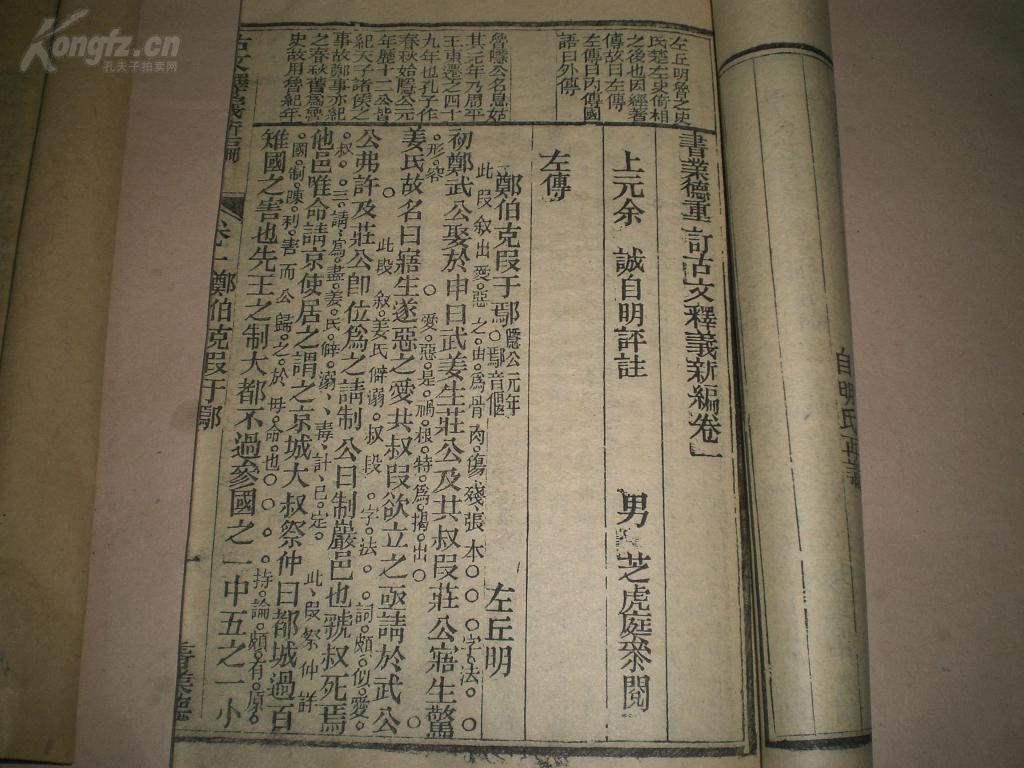 Kongfz.cn
孔夫子拍卖网
左丘明魯之史
氏楚左史倚相
之後也因經著
傳故曰左傳
左傳曰內傳國
語曰外傳
魯隱公名息姑
其元年乃周平
王東遷之四十
九年也孔子作
春秋始隱公元
年歷十二公皆
紀天子諸侯之
事故鄭事亦紀
之春秋舊爲魯
史故用魯紀年
書業德重訂古文釋義新編卷一
上元余 誠自明評註 男 芝虎庭叅閱
左傳
鄭伯克段于鄢 隱公元年 鄢音偃 左丘明
此段敘出愛惡之由爲骨肉傷殘張本 字法
初鄭武公娶於申曰武姜生莊公及共叔段莊公寤生驚
愛惡是禍根特爲揭出
姜氏故名曰寤生遂惡之愛共叔段欲立之亟請於武公
此段敘姜氏僻溺叔段 字法 詞頗似愛
公弗許及莊公卽位爲之請制公曰制巖邑也虢叔死焉
叔 請寫盡姜氏僻溺 毒計已定 此段祭仲詳
他邑唯命請京使居之謂之京城大叔祭仲曰都城過百
國制陳利害而公歸之於母命也 持論頗有原
雉國之害也先王之制大都不過參國之一中五之一小
古文釋義新編 卷一 鄭伯克段于鄢 一 書業德